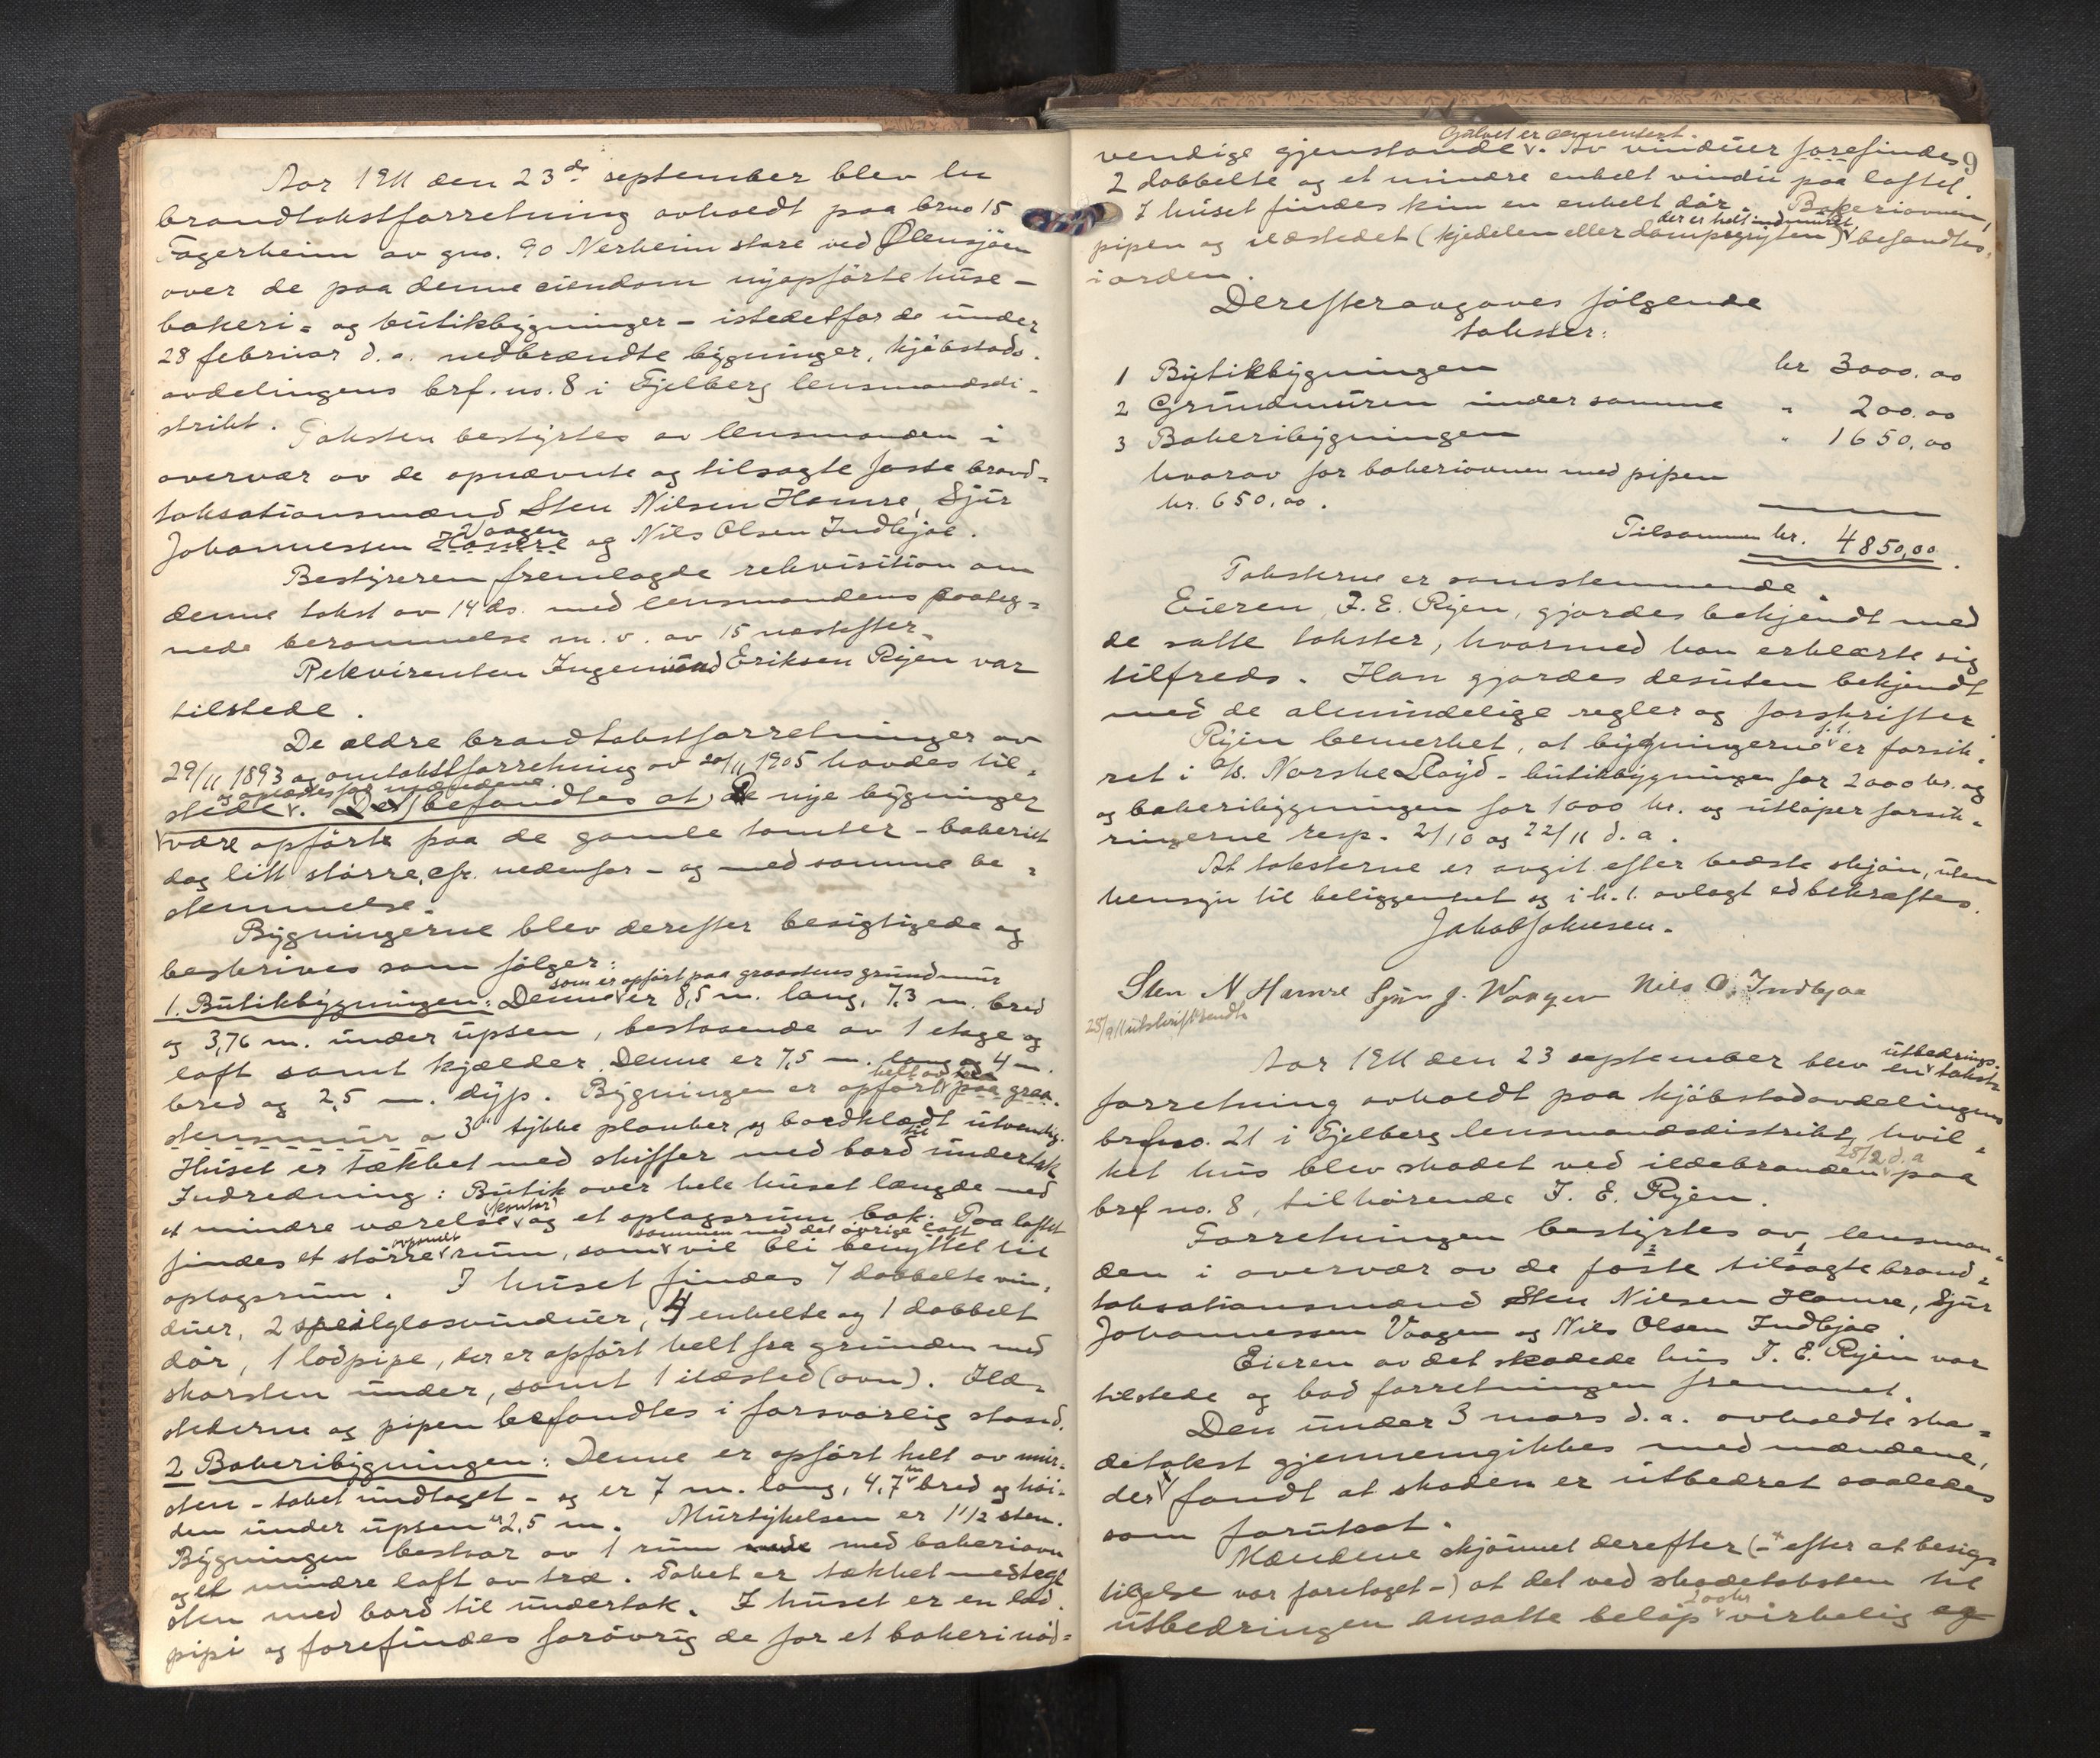 Aar 1911 den 23de september blev en
brandtakstforretning avholdt paa brno 15
Fagerheim av gno. 90 Nerheim store ved Ølensjöen
over de paa denne eiendom nyopförte huse -
bakeri- og butikbygninger - istedetfor de under
28 februar d.a. nedbrændte bygninger, kjöbstads-
avdelingens brf. no. 8 i Fjelberg lensmandsdi-
strikt. Taksten bestyrtes av lensmanden i
overvær av de opnævnte og tilsagte faste brand-
taksationsmænd Sten Nilsen Hamre, Sjur
Vaagen
Johannessen Hamre og Nils Olsen Indbjoe.
Bestyreren fremlagde rekvisition om
denne takst av 14 ds. med lensmandens paateg-
nede berammelse m.v. av 15 næstefter.
Rekvirenten Ingemund Eriksen Ryen var
tilstede.
De ældre brandtakstforretninger av
29/11 1893 og omtakstforretning av 20/11 1905 havdes til-
og oplæstes for mændene
stede. Det befandtes at de nye bygninger
være opförte paa de gamle tomter - bakeriet
dog litt större, cfr. nedenfor - og med samme be-
stemmelse.
Bygningerne blev derefter besigtigede og
beskrives som fölger:
som er opfört paa graastens grundmur
1. Butikbygningen: Denne er 8,5 m. lang, 7,3 m. bred
og 3,76 m. under upsen, bestaaende av 1 etage og
loft samt kjælder. Denne er 7,5 m. lang og 4 m.
helt av
bred og 2,5 m. dyp. Bygningen er opfört paa graa-
stensmur a 3" tykke planker og bordklædt utvendig.
Huset er tækket med skiffer med bord til undertak
Indredning: Butik over hele huset længde med
(kontor)
et mindre værelse og et oplagsrum bak. Paa loftet
opanelt sammen med det övrige loft
findes et större rum, som vil bli benyttet til
oplagsrum. I huset findes 7 dobbelte vin-
duer, 2 speilglasvinduer, 4 enkelte og 1 dobbelt
dör, 1 lodpipe, der er opfört helt fra grunden med
skorsten under, samt 1 ildsted (ovn). Ild-
stederne og pipen befandtes i forsvarlig stand.
2 Bakeribygningen: Denne er opfört helt av mur-
sten - taket undtaget - og er 7 m. lang, 4,7 m bred og höi-
den under upsen er 2,5 m. Murtykelsen er 1 1/2 sten.
Bygningen bestaar av 1 rum med bakeriovn
og et mindre loft av træ. Taket er tækket med tegl
sten med bord til undertak. I huset er en lod-
pipe og forefindes forövrig de for et bakeri nöd-
9
Gulvet er cementert.
vendige gjenstande. Av vinduer forefindes
2 dobbelte og et mindre enkelt vindu paa loftet.
I huset findes kun en enkelt dör. Bakeriovnen,
der er helt indmuret
pipen og ildstedet (kjedelen eller dampgryten) befandtes
i orden.
Derefter avgaves fölgende
takster:
1 Butikbygningen kr 3000.00
2 Grundmuren under samme " 200.00
3 Bakeribygningen " 1650.00
hvorav for bakeriovnen med pipen
kr. 650,00.
Tilsammen kr. 4850,00.
Taksterne er samstemmende.
Eieren, I. E. Ryen, gjordes bekjendt med
de satte takster, hvormed han erklærte sig
tilfreds. Han gjordes desuten bekjendt
med de almindelige regler og forskrifter.
Ryen bemerket, at bygningerne er forsik-
ret i A/S. Norske Lloyd - butikbygningen for 2000 kr. og
og bakeribygningen for 1000 kr. og utlöper forsik-
ringerne resp. 2/10 og 22/11 d.a.
At taksterne er avgit efter bedste skjön, uten
hensyn til beliggenhet og i h.t. avlagt ed bekræftes.
Jakob Johnsen.
Sten N Hamre Sjur J. Waagen Nils O. Indbjoe
28/9 11 utskrift sendt.
utbedrings-
Aar 1911 den 23 september blev en takst-
forretning avholdt paa kjöbstadavdelingens
brfno. 21 i Fjelberg lensmandsdistrikt, hvil-
28/2 d.a
ket hus blev skadet ved ildebranden paa
brf no. 8, tilhörende I. E. Ryen.
Forretningen bestyrtes av lensman-
den i overvær av de faste tilsagte brand-
taksationsmænd Sten Nilsen Hamre, Sjur
Johannessen Vaagen og Nils Olsen Indbjoe.
Eieren av det skadede hus I. E. Ryen var
tilstede og bad forretningen fremmet.
Den under 3 mars d.a. avholdte ska-
detakst gjennemgikkes med mændene,
der fandt at skaden er utbedret saaledes
som forutsat.
Mændene skjönnet derefter (- efter at besig-
tigelse var foretaget -) at det ved skadetaksten til
200 kr
utbedringen ansatte belöp virkelig og